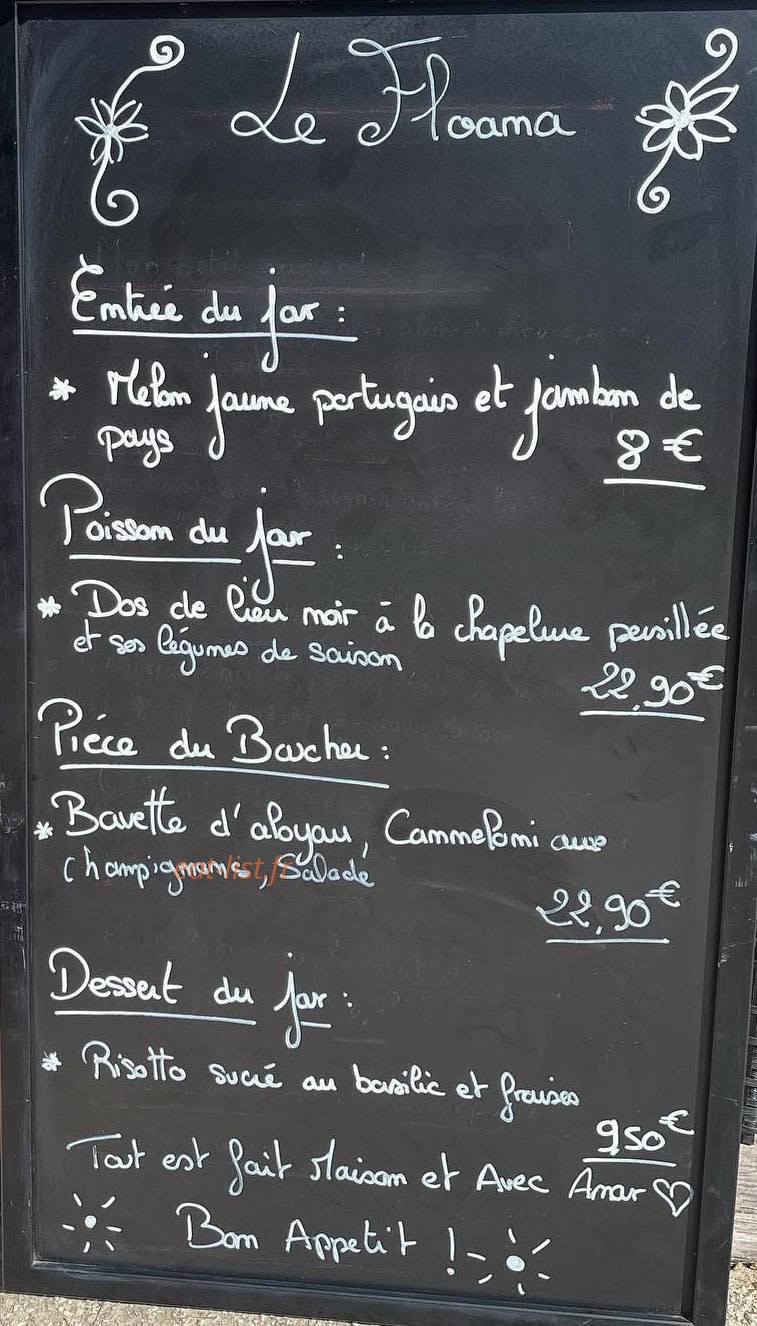 Le Floama
Entrée du jour :
* Melon jaune portugais et jambon de
pays
8 €
Poisson du jour :
* Dos de lieu noir à la chapelure persillée
et ses légumes de saison
22,90€
Piéce du Boucher :
* Bavette d'aloyau, Cannelloni aux
champignons, Salade
eat-list.fr
22,90€
Dessert du jour :
* Risotto sucré au basilic et fraises
950€
Tout est fait Maison et Avec Amour ♡
Bon Appetit !